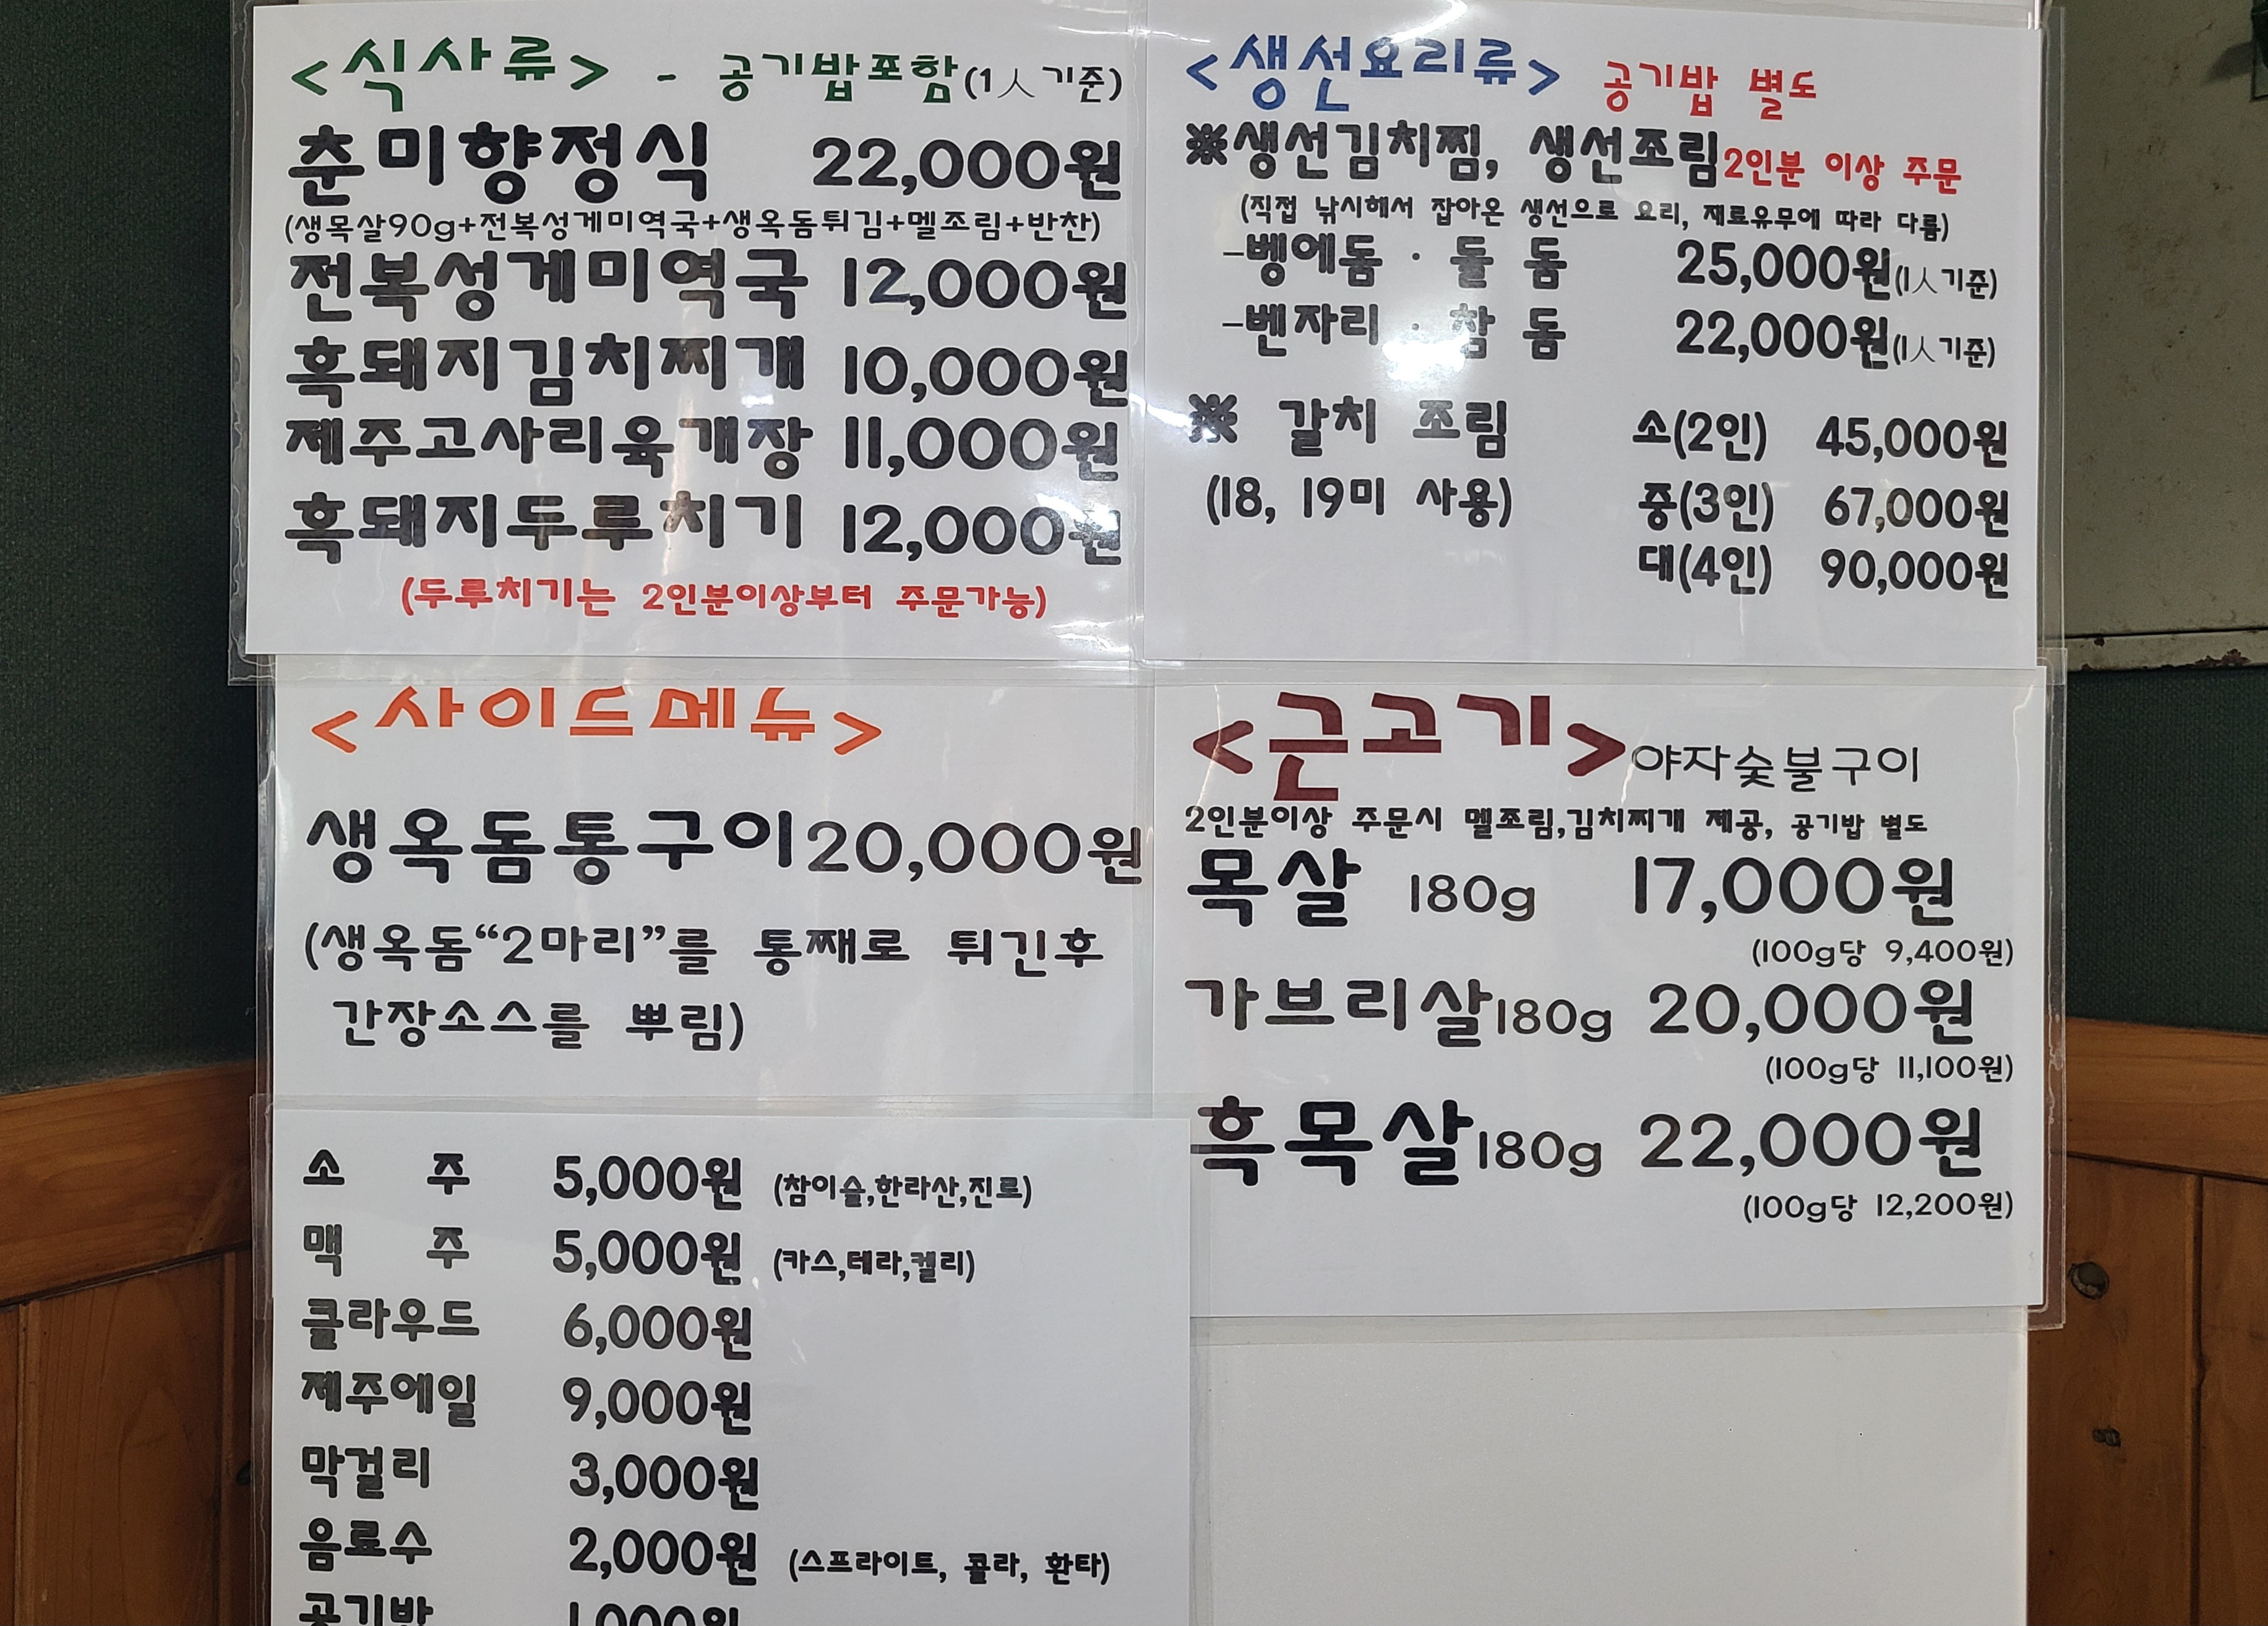 <식사류> - 공기밥포함(1人 기준)
춘미향정식 22,000원
(생목살90g+전복성게미역국+생옥돔튀김+멜조림+반찬)
전복성게미역국 12,000원
흑돼지김치찌개 10,000원
제주고사리육개장 11,000원
흑돼지두루치기 12,000원
(두루치기는 2인분이상부터 주문가능)
<생선요리류> 공기밥 별도
※생선김치찜, 생선조림2인분 이상 주문
(직접 낚시해서 잡아온 생선으로 요리, 재료유무에 따라 다름)
-벵에돔 · 돌 돔 25,000원(1人 기준)
-벤자리 · 참 돔 22,000원(1人 기준)
※ 갈치 조림 소(2인) 45,000원
(18, 19미 사용) 중(3인) 67,000원
대(4인) 90,000원
<사이드메뉴>
생옥돔통구이20,000원
(생옥돔“2마리”를 통째로 튀긴후
간장소스를 뿌림)
<근고기>야자숯불구이
2인분이상 주문시 멜조림,김치찌개 제공, 공기밥 별도
목살 180g 17,000원
(100g당 9,400원)
가브리살180g 20,000원
(100g당 11,100원)
흑목살180g 22,000원
(100g당 12,200원)
소 주 5,000원 (참이슬,한라산,진로)
맥 주 5,000원 (카스,테라,켈리)
클라우드 6,000원
제주에일 9,000원
막걸리 3,000원
음료수 2,000원 (스프라이트, 콜라, 환타)
공기밥 1,000원